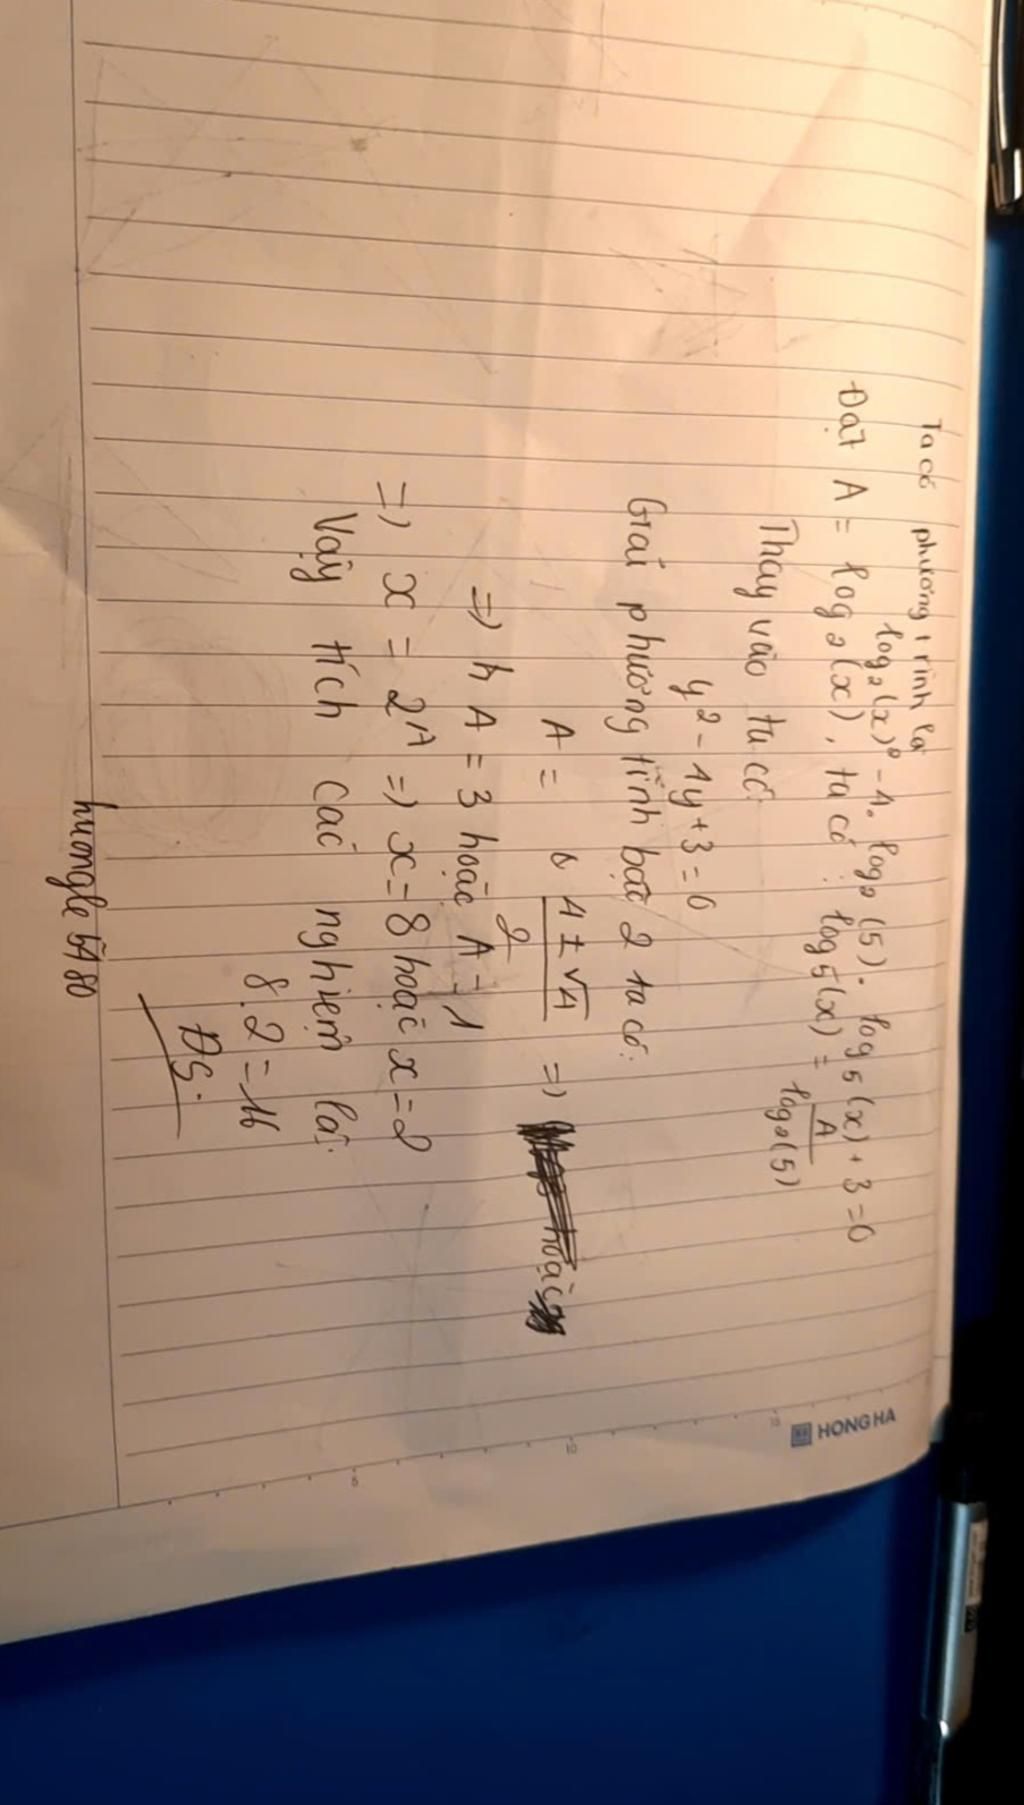 Ta có phương trình là
log₂(x)² - 4. log₂(5). log₅(x) + 3 = 0
Đặt A = log₂(x), ta có: log₅(x) = A / log₂(5)
Thay vào ta có:
y² - 4y + 3 = 0
Giải phương tình bậc 2 ta có:
A = (4 ± √4) / 2 =) hoặc
=) A = 3 hoặc A = 1
=) x = 2ᴬ =) x = 8 hoặc x = 2
Vậy tích các nghiệm là:
8.2 = 16
ĐS.
huongle
HONG HA
5
10
15